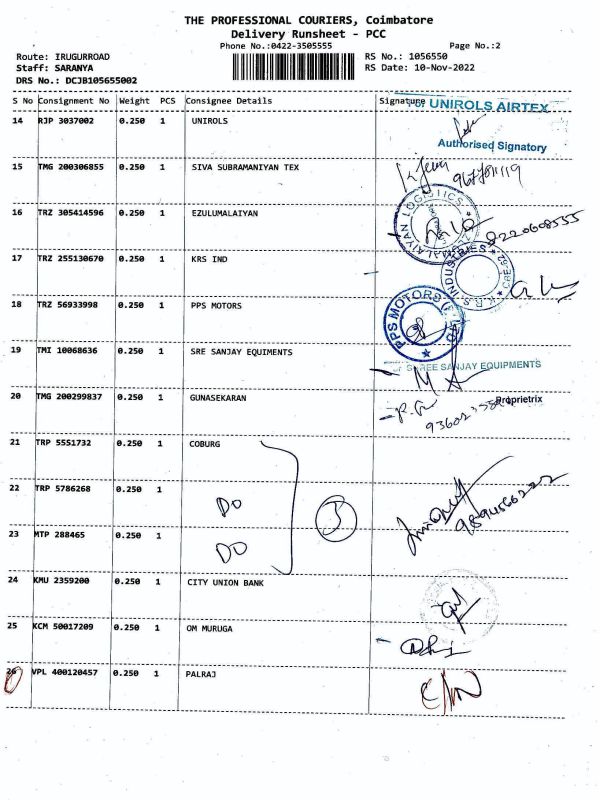 THE PROFESSIONAL COURIERS, Coimbatore
Delivery Runsheet - PCC
Phone No.:0422-3505555
Page No.:2
Route: IRUGURROAD
RS No.: 1056550
Staff: SARANYA
RS Date: 10-Nov-2022
DRS No.: DCJB105655002
S No Consignment No Weight PCS Consignee Details Signature
UNIROLS AIRTEX
14 RJP 3037002 0.250 1 UNIROLS
Authorised Signatory
15 TMG 200306855 0.250 1 SIVA SUBRAMANIYAN TEX
16 TRZ 305414596 0.250 1 EZULUMALAIYAN
LOGISTICS
8220608555
17 TRZ 255130670 0.250 1 KRS IND
18 TRZ 56933998 0.250 1 PPS MOTORS
PPS MOTORS
19 TMI 10068636 0.250 1 SRE SANJAY EQUIMENTS
SREE SANJAY EQUIPMENTS
20 TMG 200299837 0.250 1 GUNASEKARAN
Proprietrix
21 TRP 5551732 0.250 1 COBURG
22 TRP 5786268 0.250 1 DO
23 MTP 288465 0.250 1 DO
3
24 KMU 2359200 0.250 1 CITY UNION BANK
25 KCM 50017209 0.250 1 OM MURUGA
26 VPL 400120457 0.250 1 PALRAJ